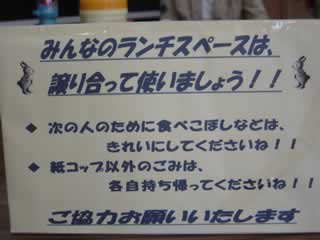 みんなのランチスペースは、
譲り合って使いましょう!!
◆ 次の人のために食べこぼしなどは、
きれいにしてくださいね!!
◆ 紙コップ以外のごみは、
各自持ち帰ってくださいね!!
ご協力お願いいたします